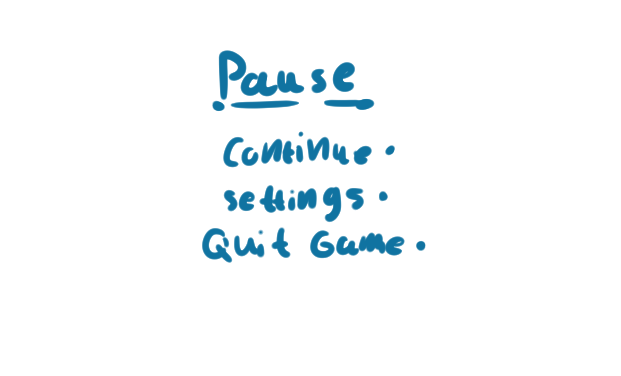 Pause
Continue.
settings.
Quit Game.